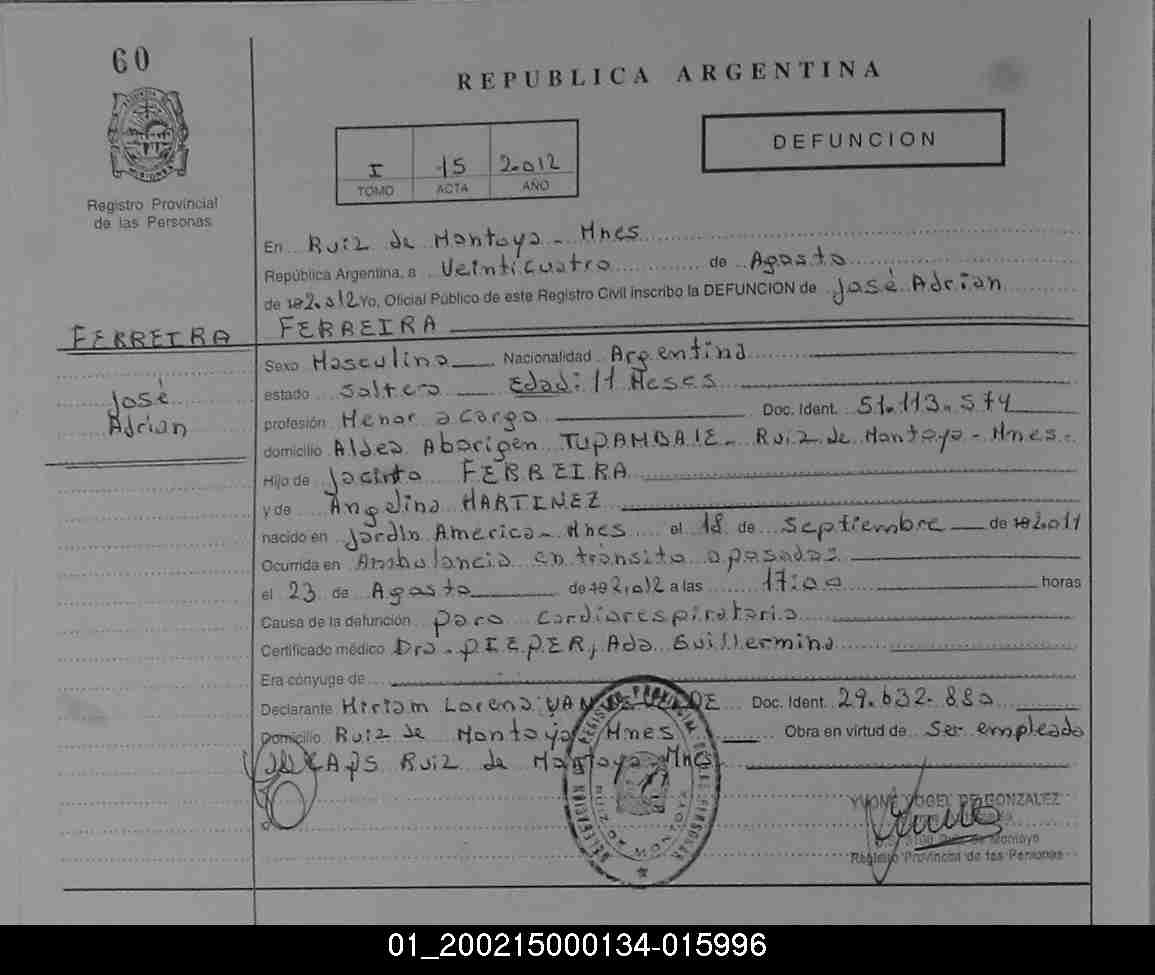 60
REPUBLICA ARGENTINA
DEFUNCION
I 15 2.012
TOMO ACTA AÑO
Registro Provincial
de las Personas
En Ruiz de Montoya - Mnes
República Argentina, a Veinticuatro de Agosto
de 2.012 Yo, Oficial Público de este Registro Civil inscribo la DEFUNCION de José Adrian
FERREIRA
FERREIRA
José
Adrian
Sexo Masculino Nacionalidad Argentina
estado Soltero Edad: 11 Meses
profesión Menor a cargo Doc. Ident. 51.113.574
domicilio Aldea Aborigen TUPAMBAIE - Ruiz de Montoya - Mnes -
Hijo de Jacinto FERREIRA
y de Angelina MARTINEZ
nacido en Jardín America - Mnes el 18 de Septiembre de 2.011
Ocurrida en Ambulancia en tránsito a posadas
el 23 de Agosto de 2.012 a las 17:00 horas
Causa de la defunción paro cardiorespiratorio
Certificado médico Dra. PIEPER, Ada Guillermina
Era cónyuge de
Declarante Miriam Lorena DE Doc. Ident. 29.632.880
Domicilio Ruiz de Montoya Mnes Obra en virtud de Ser empleada
CAPS Ruiz de Montoya - Mnes
DELEGACION REGISTRO PROVINCIAL DE LAS PERSONAS
RUIZ DE MONTOYA
YVONE VOGEL DE GONZALEZ
Ruiz de Montoya
Registro Provincial de las Personas
01_200215000134-015996